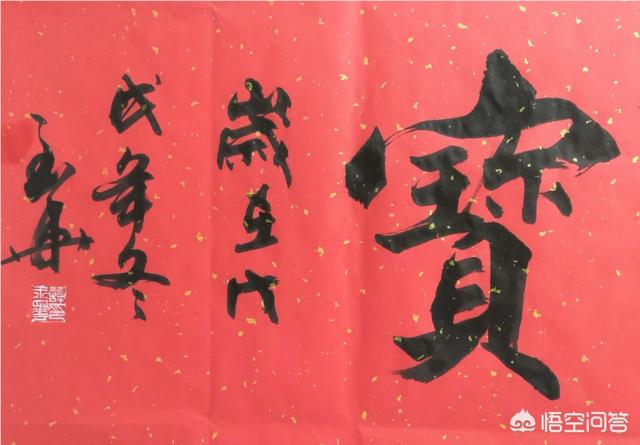 寳
歲在戊
戌年冬
悟空问答